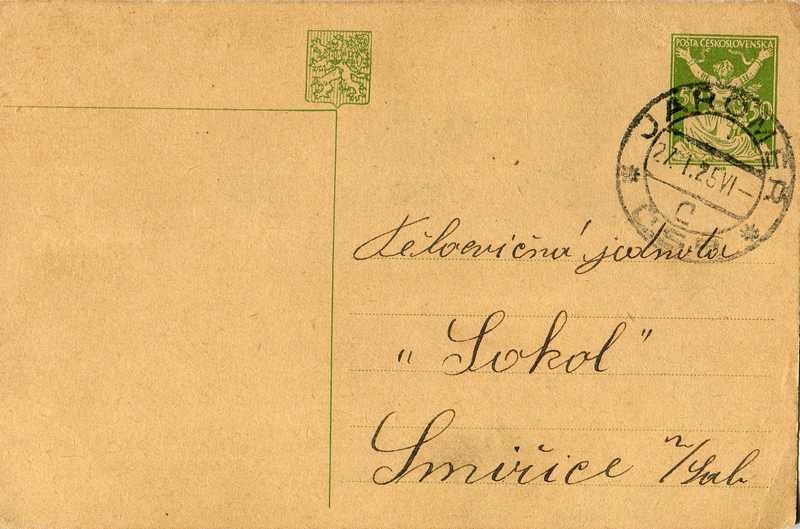 POŠTA ČESKOSLOVENSKA
50 50
JAROMĚŘ
27.I.25 VI–
c
ČSR
Tělocvičná jednota
„Sokol"
Smiřice n/Lab.